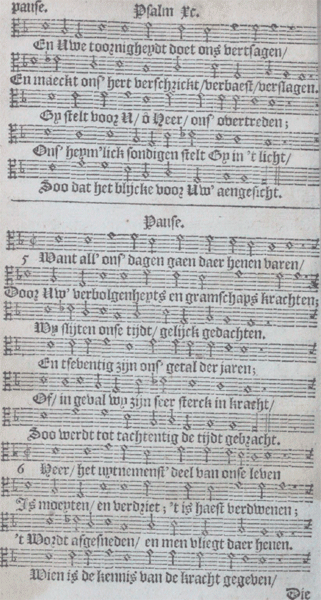 pause. Psalm xc.
En Uwe toornigheydt doet ons vertsagen/
En maeckt ons' hert verschrickt/verbaest/verslagen.
Gy stelt voor U/ ô Heer/ ons' overtreden;
Ons' heym'lick sondigen stelt Gy in 't licht/
Soo dat het blijcke voor Uw' aengesicht.
Pause.
5 Want all' ons' dagen gaen daer henen varen/
Door Uw' verbolgenheyts en gramschaps krachten;
Wy slijten onse tijdt/ gelijck gedachten.
En tseventig zijn ons' getal der jaren;
Of/ in geval wy zijn seer sterck in kracht/
Soo werdt tot tachtentig de tijdt gebracht.
6 Heer/ het uytnemenst' deel van onse leven
Is moeyten/ en verdriet; 't is haest verdwenen;
't Wordt afgesneden/ en men vliegt daer henen.
Wien is de kennis van de kracht gegeven/
Die